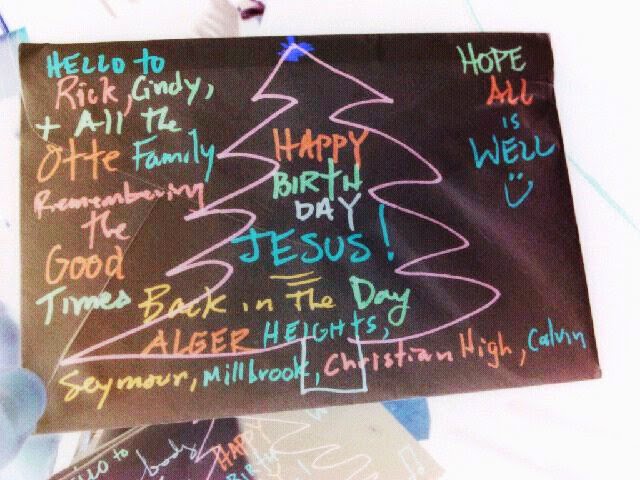 HELLO to
Rick, Cindy,
+ All the
Otte Family
Remembering
the
Good
Times Back in The Day
ALGER HEIGHTS,
Seymour, Millbrook, Christian High, Calvin
HAPPY
BIRTH
DAY
JESUS!
HOPE
ALL
is
WELL
HAPPY
BIRTH